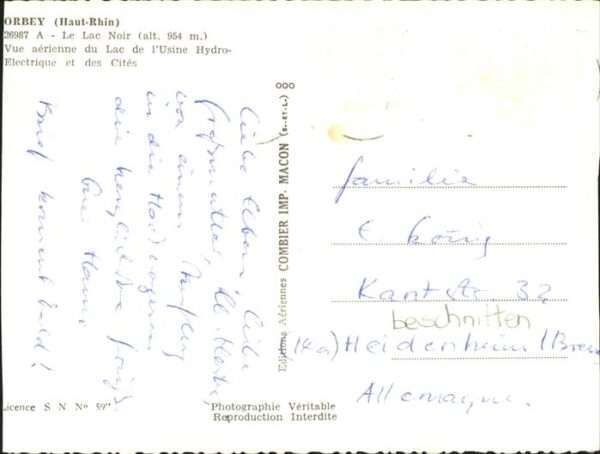 ORBEY (Haut-Rhin)
26987 A - Le Lac Noir (alt. 954 m.)
Vue aérienne du Lac de l'Usine Hydro-
Electrique et des Cités
Liebe Eltern, liebe
Großmutter,
von einem Ausflug
in die
die herzlichsten Grüße
Brief kommt bald!
Editions Aériennes COMBIER IMP. MACON (S.-ET-L.)
Familie
E König
Kantstr. 32
beschnitten
Heidenheim/Brenz
Allemagne.
Licence S N N° 59
Photographie Véritable
Reproduction Interdite